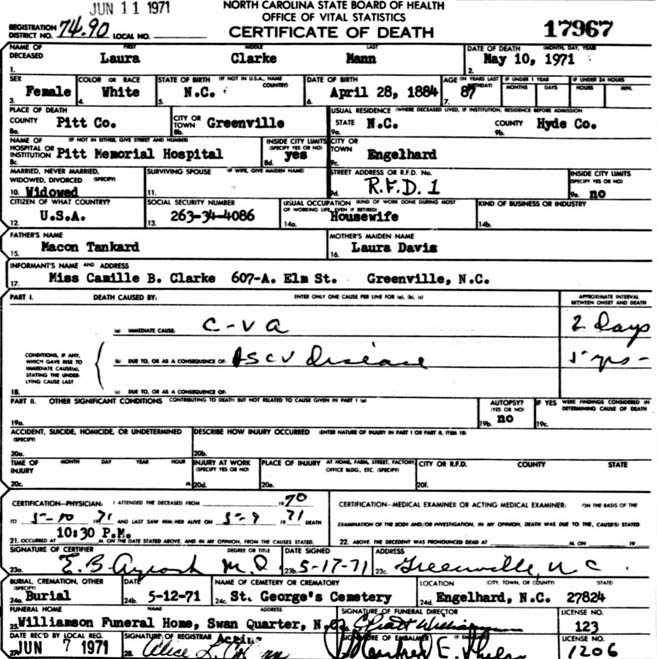 JUN 11 1971
NORTH CAROLINA STATE BOARD OF HEALTH
OFFICE OF VITAL STATISTICS
REGISTRATION DISTRICT NO. 74.90 LOCAL NO.
CERTIFICATE OF DEATH
17967
NAME OF DECEASED FIRST MIDDLE LAST DATE OF DEATH (MONTH, DAY, YEAR)
1. Laura Clarke Mann 2. May 10, 1971
SEX COLOR OR RACE STATE OF BIRTH (IF NOT IN U.S.A., NAME COUNTRY) DATE OF BIRTH AGE (IN YEARS LAST BIRTHDAY) IF UNDER 1 YEAR IF UNDER 24 HOURS
MONTHS DAYS HOURS MIN.
3. Female 4. White 5. N.C. 6. April 28, 1884 87
PLACE OF DEATH USUAL RESIDENCE (WHERE DECEASED LIVED. IF INSTITUTION, RESIDENCE BEFORE ADMISSION)
8a. COUNTY Pitt Co. 8b. CITY OR TOWN Greenville 9a. STATE N.C. 9b. COUNTY Hyde Co.
NAME OF HOSPITAL OR INSTITUTION (IF NOT IN EITHER, GIVE STREET AND NUMBER) INSIDE CITY LIMITS (SPECIFY YES OR NO) CITY OR TOWN
8c. Pitt Memorial Hospital 8d. yes 9c. Engelhard
MARRIED, NEVER MARRIED, WIDOWED, DIVORCED (SPECIFY) SURVIVING SPOUSE (IF WIFE, GIVE MAIDEN NAME) STREET ADDRESS OR R.F.D. No. INSIDE CITY LIMITS (SPECIFY YES OR NO)
10. Widowed 11. 9d. R.F.D. 1 9e. no
CITIZEN OF WHAT COUNTRY? SOCIAL SECURITY NUMBER USUAL OCCUPATION (KIND OF WORK DONE DURING MOST OF WORKING LIFE, EVEN IF RETIRED) KIND OF BUSINESS OR INDUSTRY
12. U.S.A. 13. 263-34-4086 14a. Housewife 14b.
FATHER'S NAME MOTHER'S MAIDEN NAME
15. Macon Tankard 16. Laura Davis
INFORMANT'S NAME AND ADDRESS
17. Miss Camille B. Clarke 607-A. Elm St. Greenville, N.C.
PART I. DEATH CAUSED BY: ENTER ONLY ONE CAUSE PER LINE FOR (a), (b), (c) APPROXIMATE INTERVAL BETWEEN ONSET AND DEATH
(a) IMMEDIATE CAUSE: C-V A 2 days
CONDITIONS, IF ANY, WHICH GAVE RISE TO IMMEDIATE CAUSE(a) STATING THE UNDERLYING CAUSE LAST
(b) DUE TO, OR AS A CONSEQUENCE OF: ASCV disease 5 yrs-
18. (c) DUE TO, OR AS A CONSEQUENCE OF:
PART II. OTHER SIGNIFICANT CONDITIONS CONTRIBUTING TO DEATH BUT NOT RELATED TO CAUSE GIVEN IN PART I (a) AUTOPSY? (YES OR NO) IF YES WERE FINDINGS CONSIDERED IN DETERMINING CAUSE OF DEATH
19a. 19b. no 19c.
ACCIDENT, SUICIDE, HOMICIDE, OR UNDETERMINED (SPECIFY) DESCRIBE HOW INJURY OCCURRED (ENTER NATURE OF INJURY IN PART I OR PART II, ITEM 18)
20a. 20b.
TIME OF INJURY MONTH DAY YEAR HOUR INJURY AT WORK (SPECIFY YES OR NO) PLACE OF INJURY AT HOME, FARM, STREET, FACTORY, OFFICE BLDG., ETC. (SPECIFY) CITY OR R.F.D. COUNTY STATE
20c. M. 20d. 20e. 20f.
CERTIFICATION-PHYSICIAN: I ATTENDED THE DECEASED FROM 1970 CERTIFICATION-MEDICAL EXAMINER OR ACTING MEDICAL EXAMINER: ON THE BASIS OF THE
TO 5-10 1971 AND LAST SAW HIM/HER ALIVE ON 5-9 1971 DEATH EXAMINATION OF THE BODY AND/OR INVESTIGATION, IN MY OPINION, DEATH WAS DUE TO THE, CAUSE(S) STATED
10:30 P.M.
21. OCCURRED AT M. ON THE DATE STATED ABOVE, AND IN MY OPINION, FROM THE CAUSES STATED. 22. ABOVE, THE DECEDENT WAS PRONOUNCED DEAD AT M., ON 19
SIGNATURE OF CERTIFIER DEGREE OR TITLE DATE SIGNED ADDRESS
23a. E.B. Aycock M.D. 23b. 5-17-71 23c. Greenville, N C.
BURIAL, CREMATION, OTHER (SPECIFY) DATE NAME OF CEMETERY OR CREMATORY LOCATION (CITY, TOWN, OR COUNTY) (STATE)
24a. Burial 24b. 5-12-71 24c. St. George's Cemetery 24d. Engelhard, N.C. 27824
FUNERAL HOME NAME ADDRESS SIGNATURE OF FUNERAL DIRECTOR LICENSE NO.
25. Williamson Funeral Home, Swan Quarter, N. 123
DATE REC'D BY LOCAL REG. SIGNATURE OF REGISTRAR Acting SIGNATURE OF EMBALMER LICENSE NO.
27. JUN 7 1971 28. Alice L. 1206